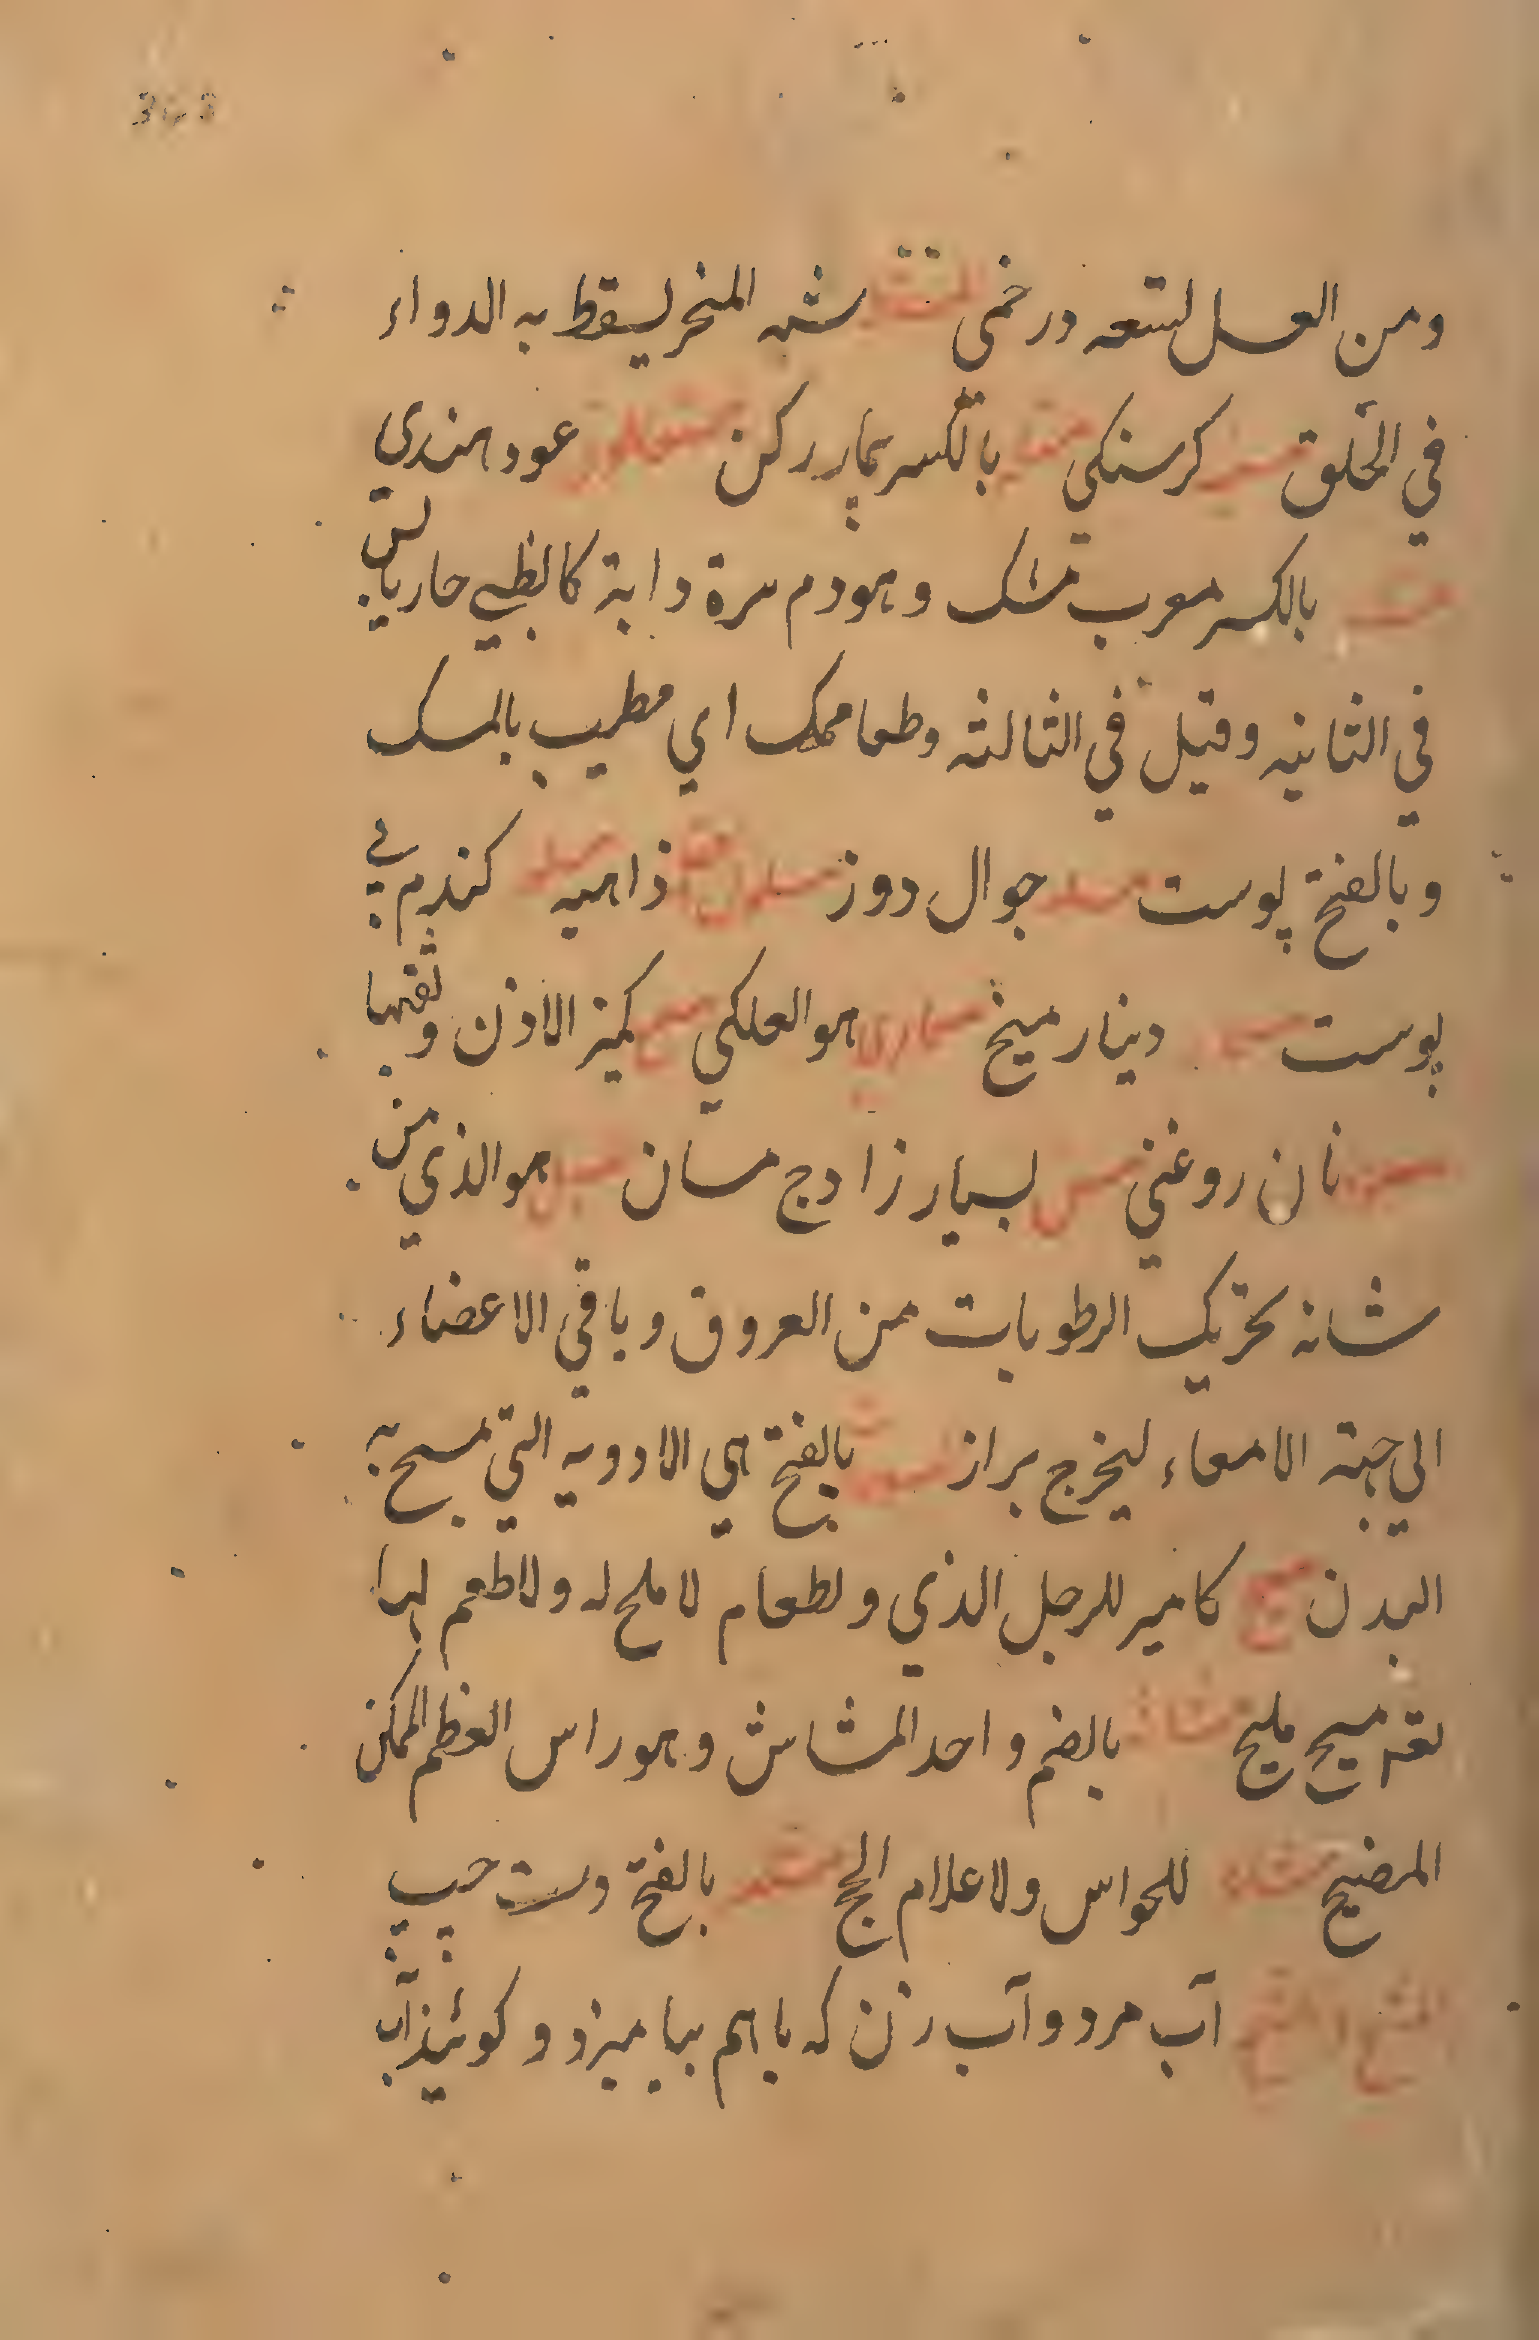 ومن العسل لتسعه درخمى المستقط شبه المنخر ليسقط به الدواء
في الحلق كرسنكي بالكسر بيمار ركن عود هندي
مسك بالكسر معرب مشك وهو دم سرة دابة كالظبي حار يابس
في الثانيه وقيل في الثالثه وطعام ممسك اي مطيب بالمسك
وبالفتح پوست مسله جوال دوز مسلول ذاهبه كندم بي
پوست دينار ميخ هو العلكي مسمع كمنبر الاذن وثقبها
نان روغني مسن بسيار زاد ج مسان مسهل هو الذي من
شانه تحريك الرطوبات من العروق وباقي الاعضاء
الي جهة الامعاء ليخرج براز بالفتح هي الادويه التي يمسح به
البدن مسيخ كامير للرجل الذي ولطعام لا ملح له ولا طعم لهذا
لقد مسيح مليخ مشاشه بالضم واحد المشاش وهو راس العظم الممكن
المضيح مشاعر للحواس ولاعلام الحج بالفتح دست چپ
المشج المشيج آب مرد وآب زن كه باهم بياميزد و كوئيند آب